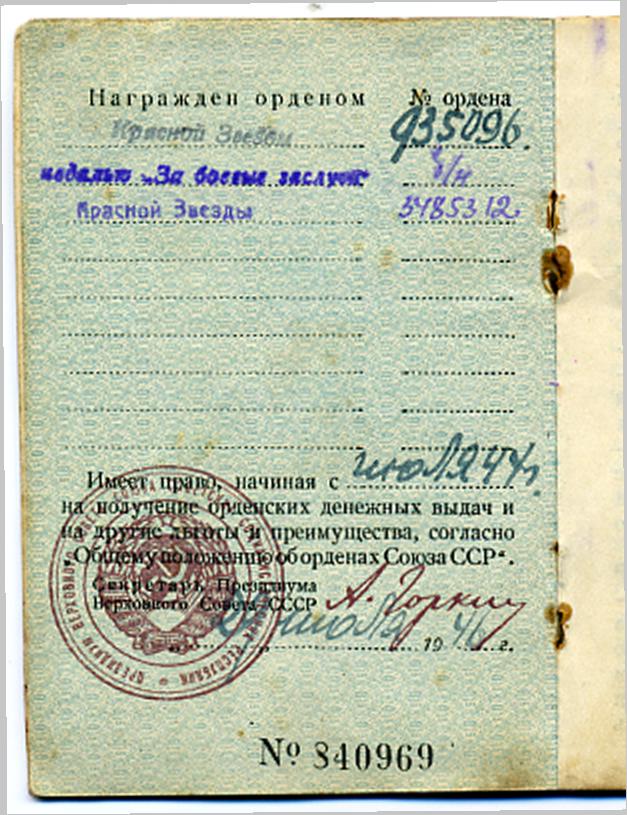 Награжден орденом № ордена
Красной Звезды 935096.
медалью „За боевые заслуги“ б/н
Красной Звезды 3485312.
Имеет право, начиная с июля 44 г.
на получение орденских денежных выдач и
на другие льготы и преимущества, согласно
„Общему положению об орденах Союза ССР“.
Секретарь Президиума
Верховного Совета СССР А. Горкин
июля 1946 г.
№ 840969